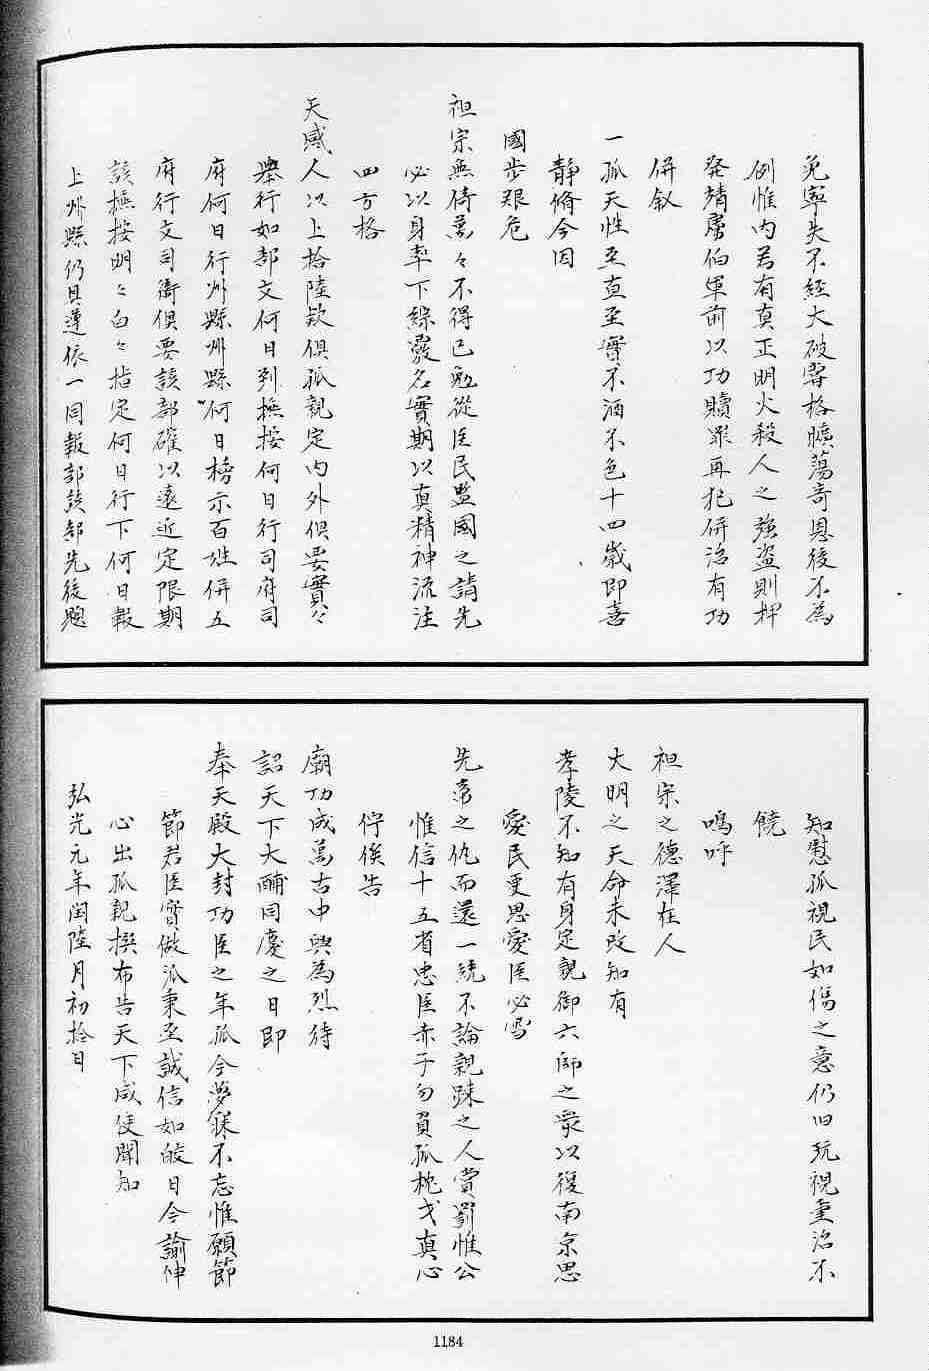 免寧失不經大破常格曠蕩奇恩後不為
例惟內若有真正明火殺人之強盜則押
発靖虜伯軍前以功贖罪再犯併治有功
併敘
一孤天性至直至實不酒不色十四歲即喜
靜脩今因
國步艱危
祖宗無倚萬々不得已勉從臣民監國之請先
必以身率下綜覈名實期以真精神流注
四方格
天感人以上拾陸欵俱孤親定內外俱要實々
舉行如部文何日到撫按何日行司府司
府何日行州縣州縣何日榜示百姓併五
府行文司衛俱要該部確以遠近定限期
該撫按明々白々指定何日行下何日報
上州縣仍具遵依一同報部該部先後題
知慰孤視民如傷之意仍旧玩視重治不
饒
嗚呼
祖宗之德澤在人
大明之天命未改知有
孝陵不知有身定親御六師之眾以復南京思
愛民更思愛臣必雪
先帝之仇而還一統不論親踈之人賞罰惟公
惟信十五省忠臣赤子勿負孤枕戈真心
佇俟告
廟功成萬古中興為烈待
詔天下大酺同慶之日即
奉天殿大封功臣之年孤今夢寐不忘惟願節
節君臣實做孤秉至誠信如皎日今諭伸
心出孤親撰布告天下咸使聞知
弘光元年閏陸月初拾日
1184